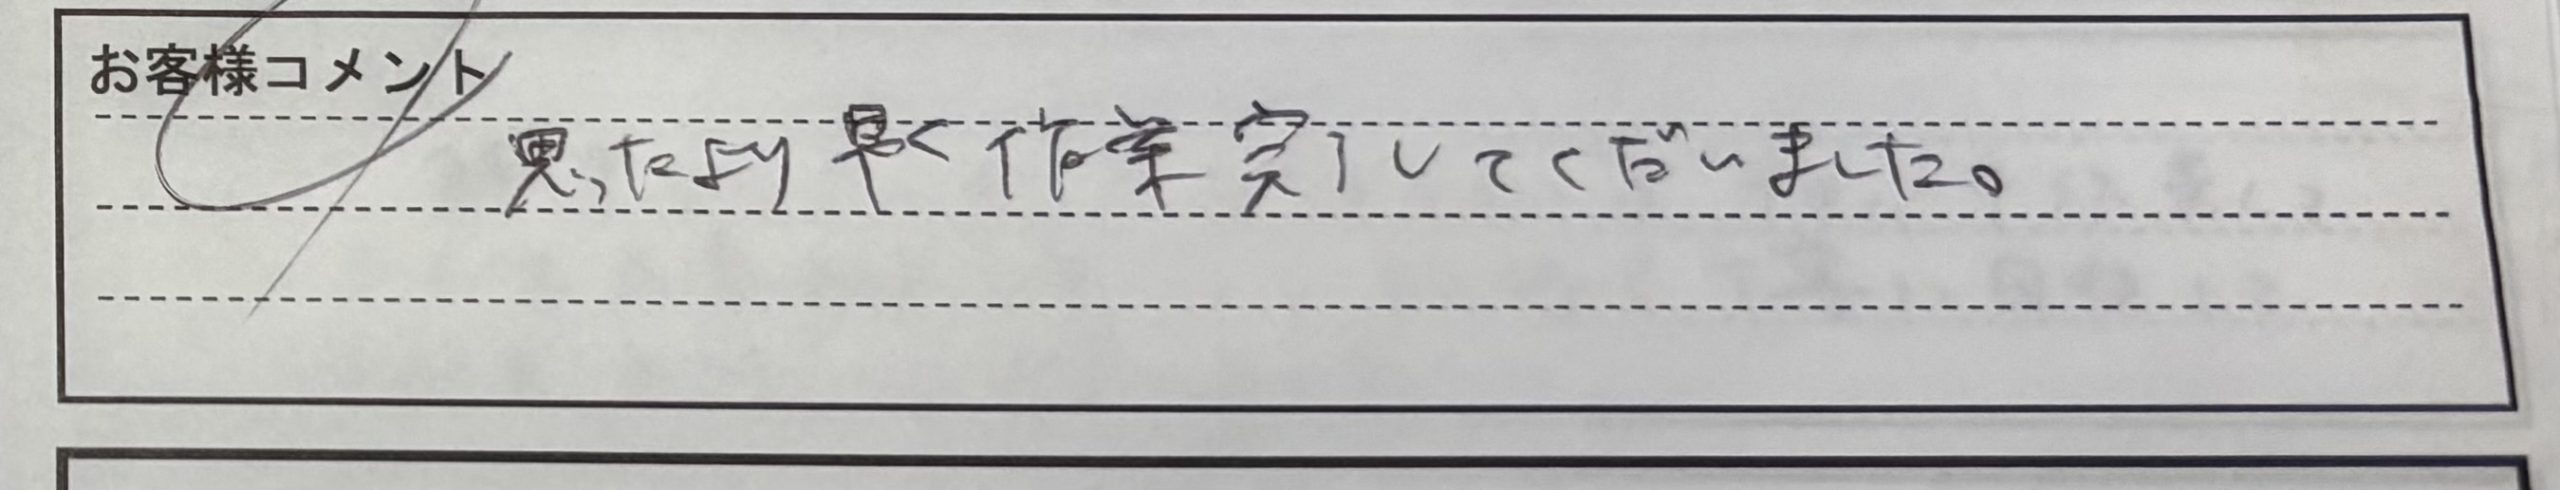 お客様コメント
思ったより早く作業完了してくだいました。